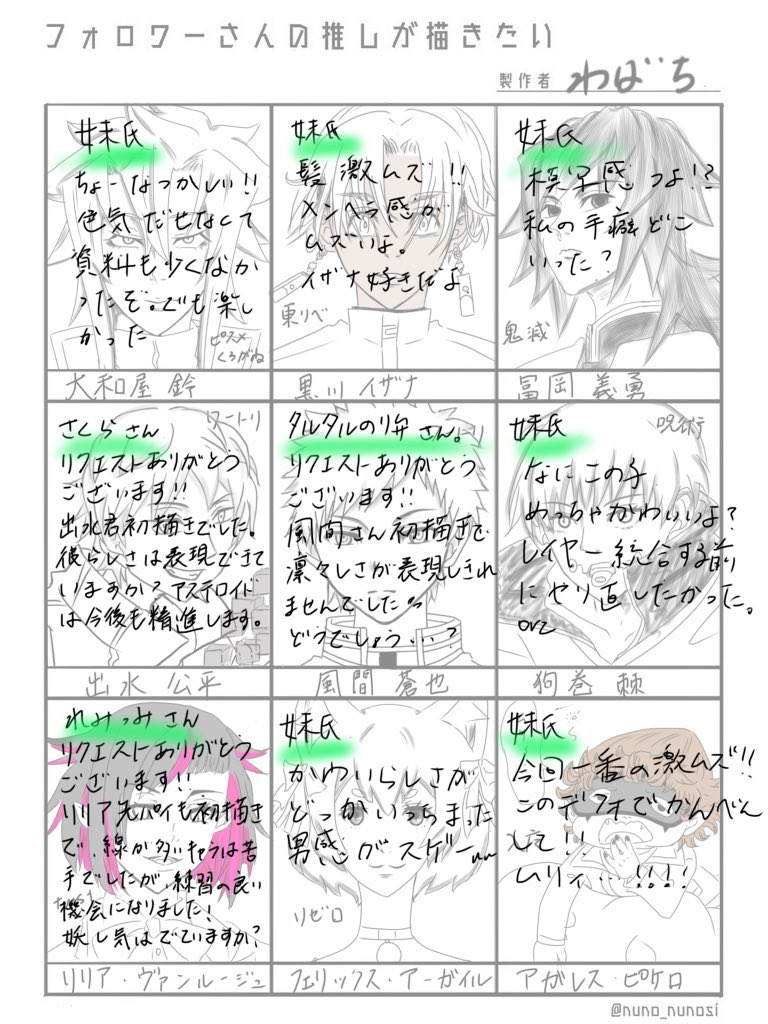 フォロワーさんの推しが描きたい
製作者 わばち
妹氏
ちょーなつかしい!!
色気だせなくて
資料も少くなか
ったぞ。でも楽し
かった
ピスメ
くろがね
大和屋 鈴
妹氏
髪激ムズ!!
メンヘラ感が
ムズいよ。
イザナ好きだよ
東リベ
黒川 イザナ
妹氏
模写感つよ!?
私の手癖どこ
いった?
鬼滅
冨岡 義勇
ワートリ
さくらさん
リクエストありがとう
ございます!!
出水君初描きでした。
彼らしさは表現できて
いますか? アステロイド
は今後も精進します。
出水 公平
タルタルのり弁さん。
リクエストありがとう
ございます!!
風間さん初描きで
凛々しさが表現しきれ
ませんでした
どうでしょう…?
風間 蒼也
妹氏
呪術
なにこの子
めっちゃかわいいよ?
レイヤー統合する前
にやり直したかった。
orz
狗巻 棘
れみつみさん
リクエストありがとう
ございます!!
リリア先パイも初描き
で、線が多いキャラは苦
手でしたが、練習の良い
機会になりました!
妖し気はでていますか?
リリア・ヴァンルージュ
妹氏
かわいらしさが
どっかいっちまった
男感がスゲー
リゼロ
フェリックス・アーガイル
妹氏
今回一番の激ムズ!!
このデフォでかんべん
して!!
ムリィ…!!!!
アガレス・ピケロ
@nuno_nunosi